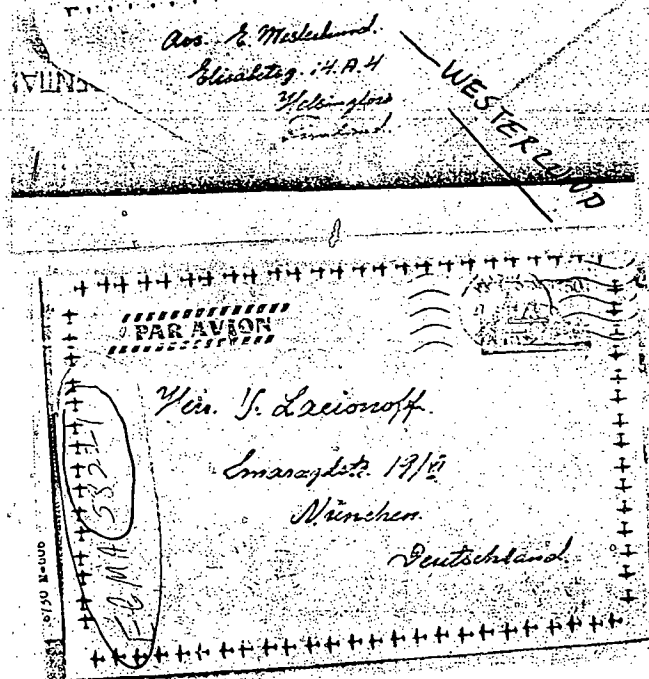 Abs. E. Westerlund.
Elisabetsg. 14.A.4
Helsingfors
Finland.
WESTERLUND
PAR AVION
Herr. Y. Larionoff.
Smaragdstr. 19/VI
München
Deutschland
EGMA